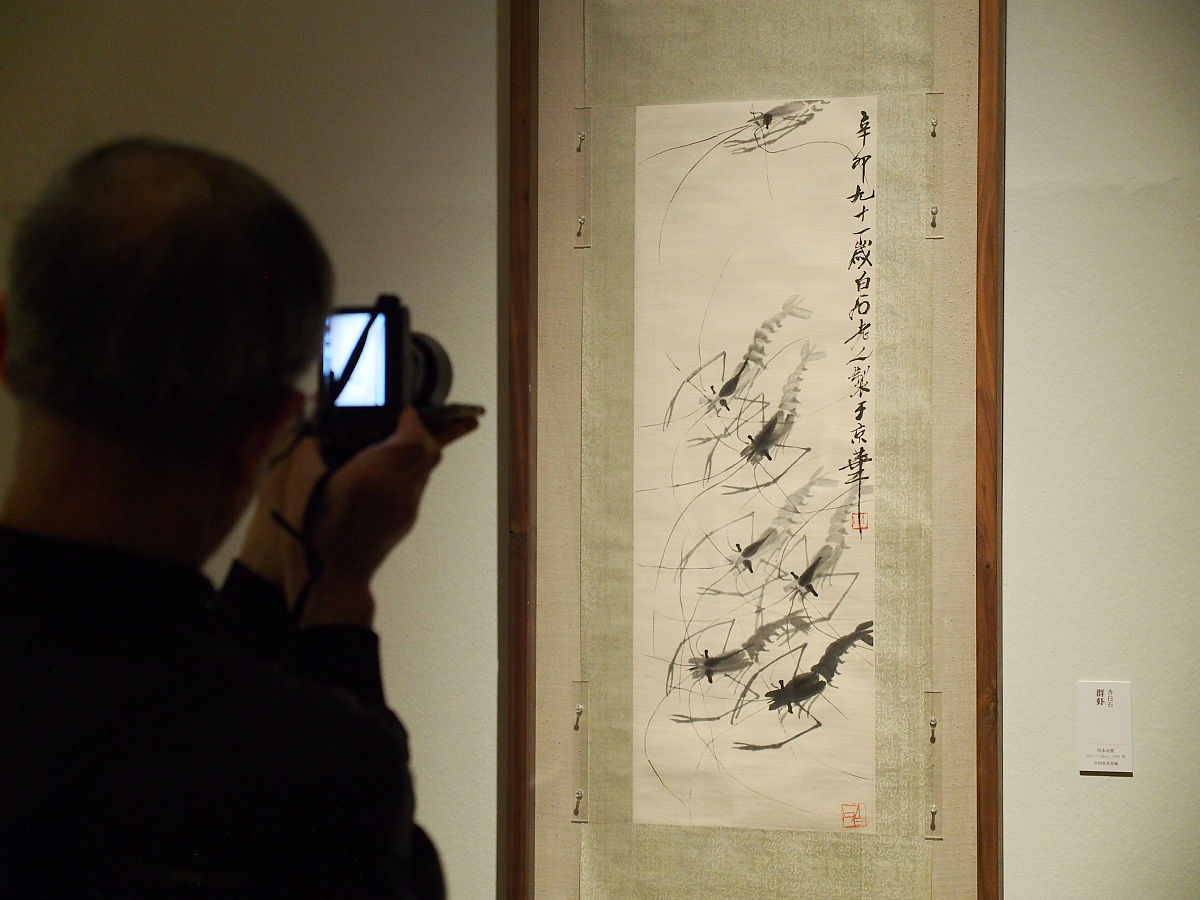 辛卯九十一歲白石老人製于京華
齐白石
群虾
纸本水墨
中国美术馆藏